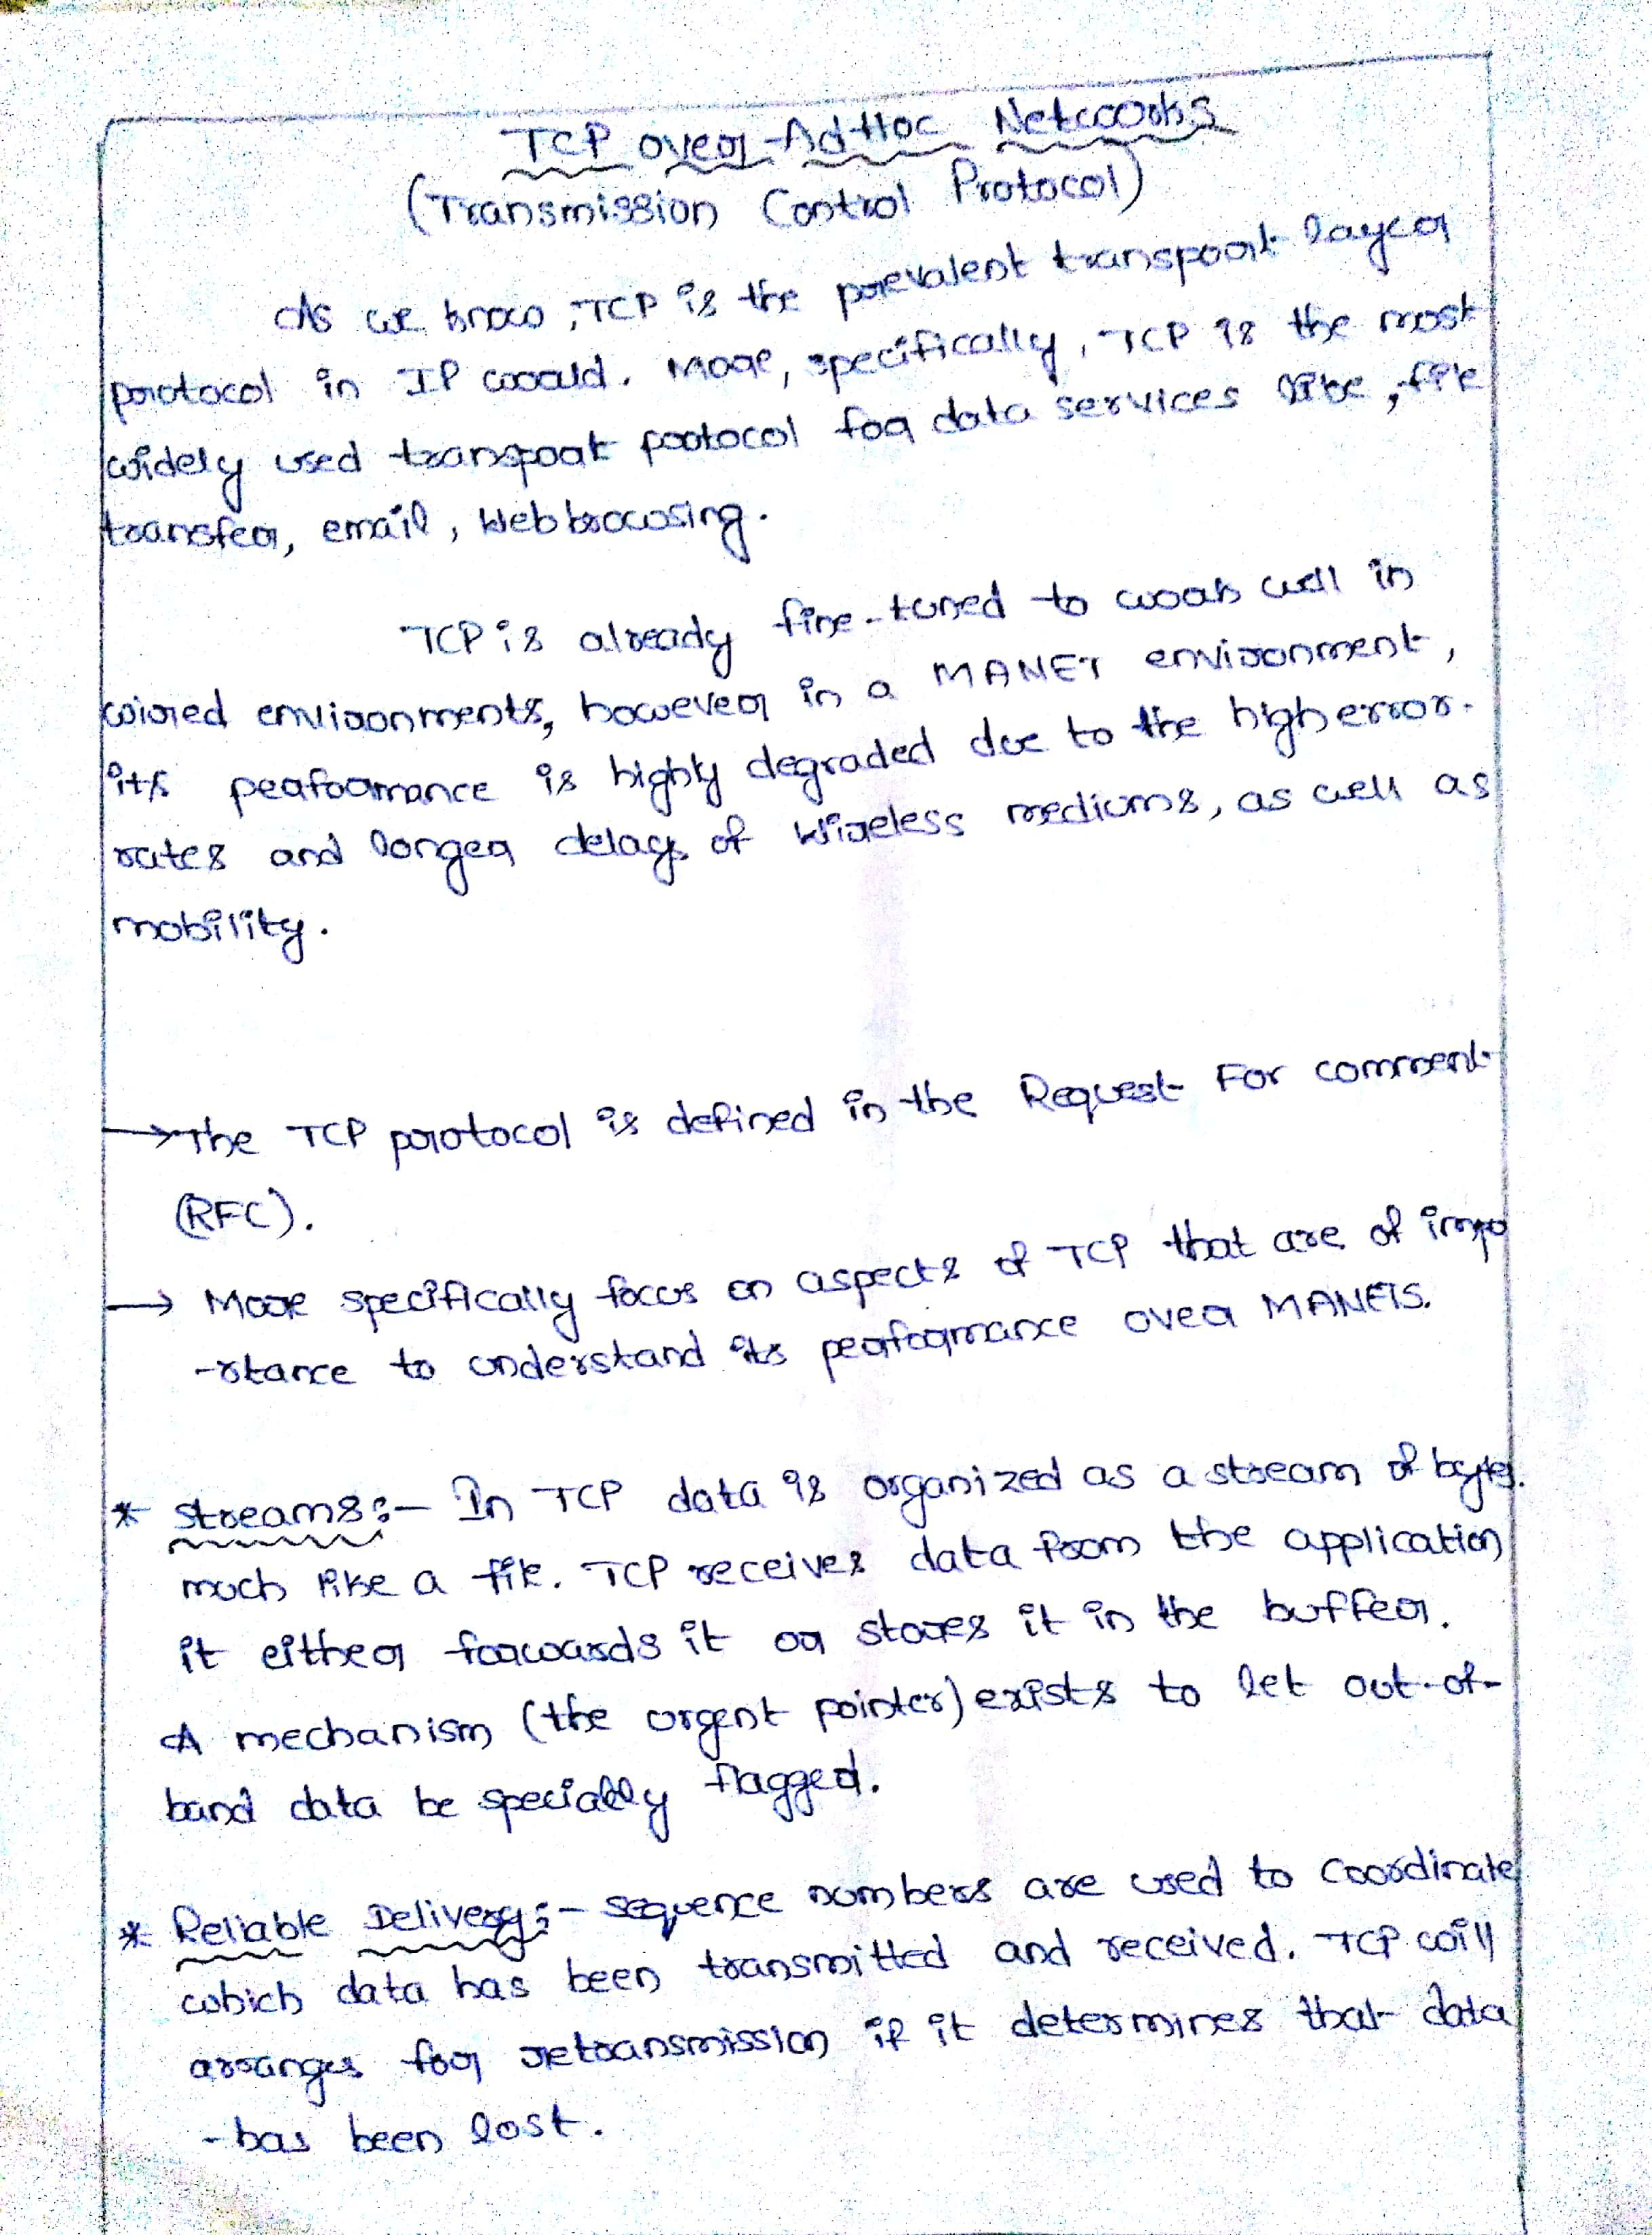 TCP over Ad-Hoc Networks
(Transmission Control Protocol)
As we know, TCP is the prevalent transport layer
protocol in IP world. More, specifically, TCP is the most
widely used transport protocol for data services like, file
transfer, email, Webbrowsing.
TCP is already fine-tuned to work well in
wired environments, however in a MANET environment,
its performance is highly degraded due to the high error.
rates and longer delays of Wireless mediums, as well as
mobility.
→ The TCP protocol is defined in the Request For comment
(RFC).
→ More specifically focus on aspects of TCP that are of impo
-rtance to understand its performance over MANETS.
* Streams:- In TCP data is organized as a stream of bytes.
much like a file. TCP receives data from the application
it either forwards it or stores it in the buffer.
A mechanism (the urgent pointer) exists to let out-of-
band data be specially flagged.
* Reliable Delivery:- sequence numbers are used to coordinate
which data has been transmitted and received. TCP will
arranges for retransmission if it determines that data
-has been lost.